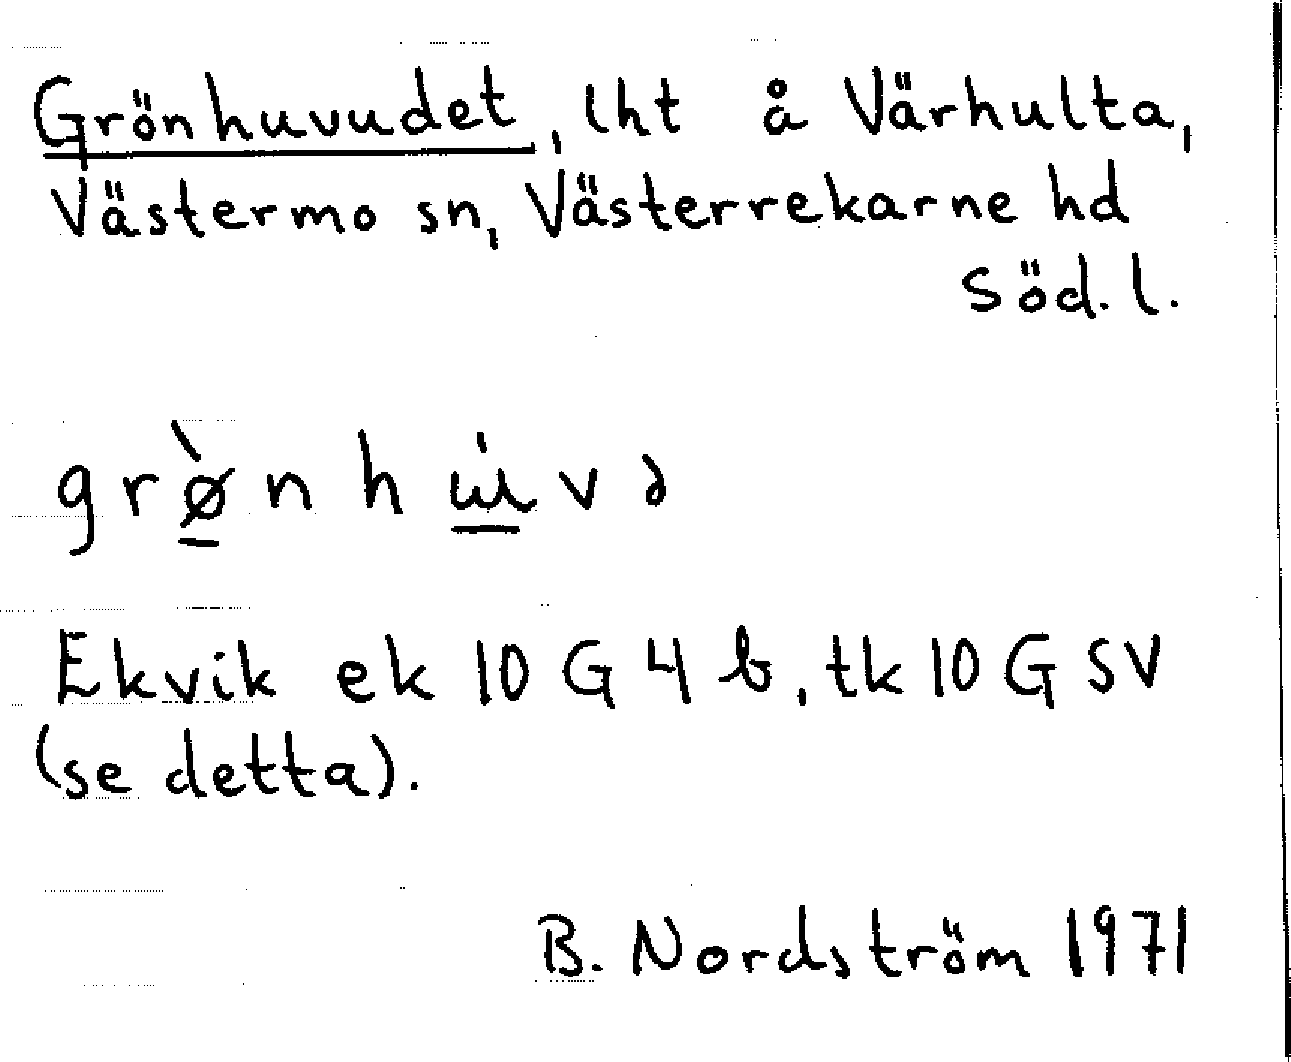 Grönhuvudet, lht å Värhulta,
Västermo sn, Västerrekarne hd
Söd. l.
Ekvik ek 10 G 4 b, tk 10 G SV
(se detta).
B. Nordström 1971